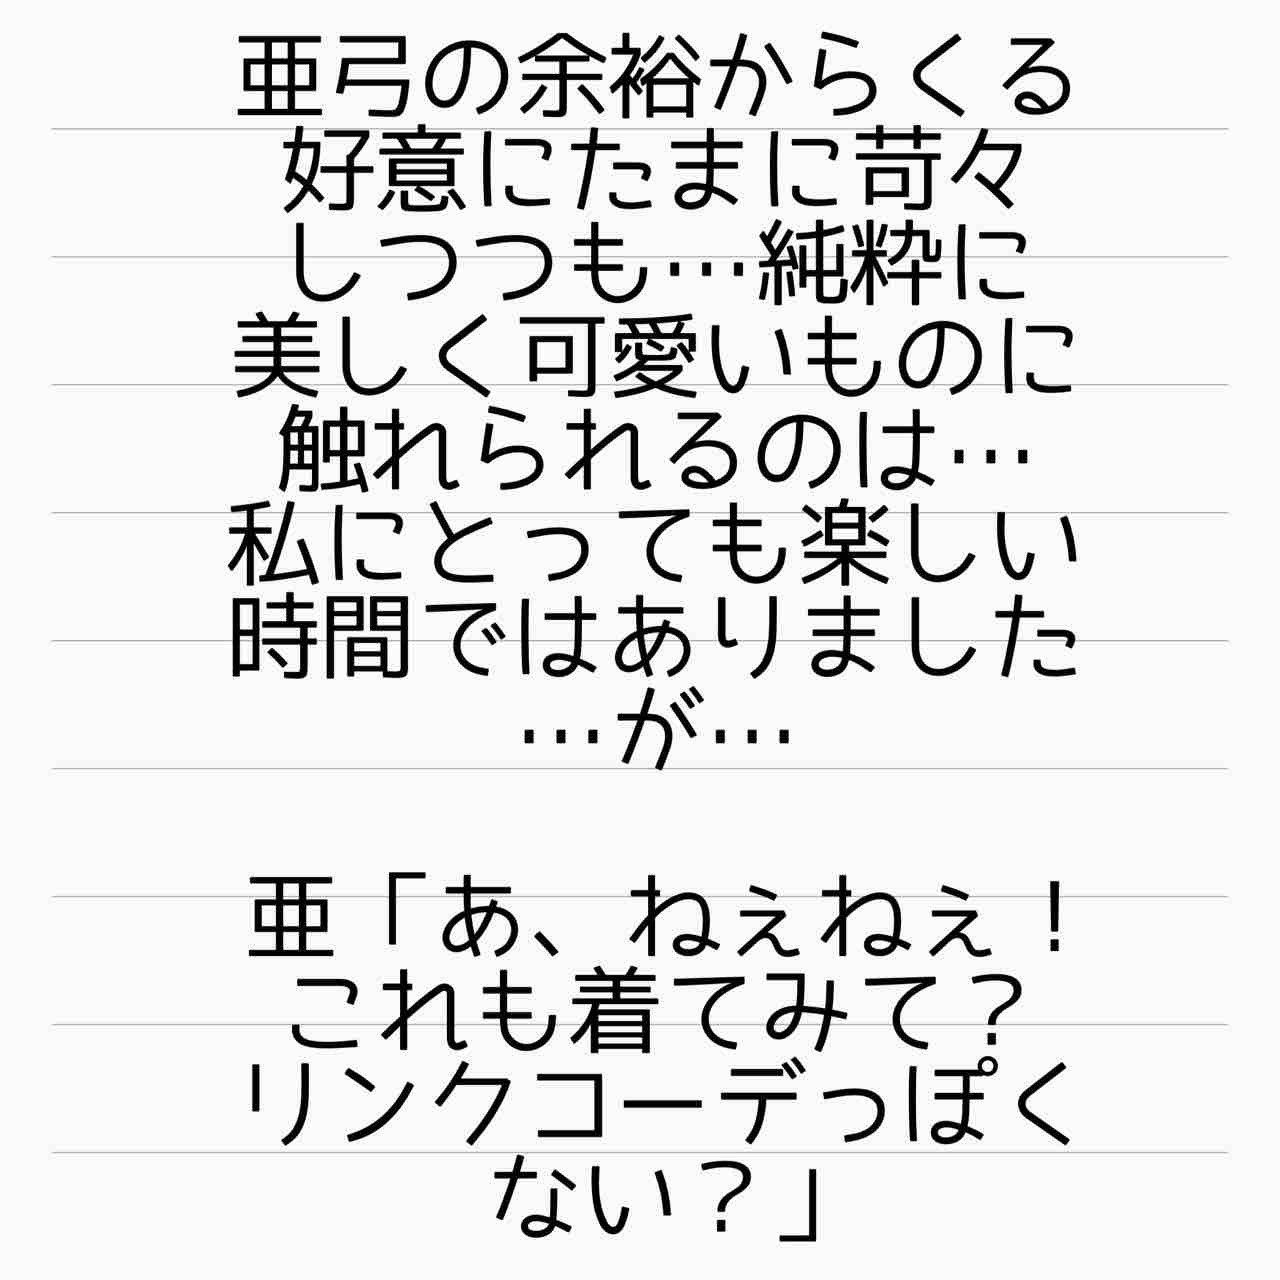 亜弓の余裕からくる
好意にたまに苛々
しつつも…純粋に
美しく可愛いものに
触れられるのは…
私にとっても楽しい
時間ではありました
…が…
亜「あ、ねぇねぇ！
これも着てみて？
リンクコーデっぽく
ない？」